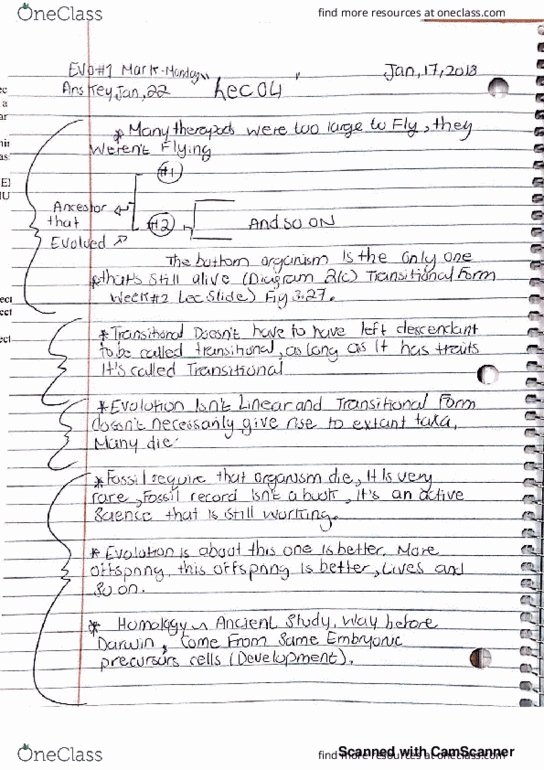 OneClass
find more resources at oneclass.com
Evo#1 Mark-Monday
Jan, 17, 2018
Ans Key Jan, 22
Lec 04
* Many therapods were too large to Fly, they
weren't Flying
#1
Ancestor
that
Evolved
#2
And so on
The bottom organism is the only one
that's still alive (Diagram 2(c) Transitional Form
Week#2 Lec Slide) Fig 3.27.
* Transitional Doesn't have to have left descendant
to be called transitional, as long as it has traits
it's called Transitional
* Evolution isn't Linear and Transitional Form
doesn't necessarily give rise to extant taxa,
Many die.
* Fossil require that organism die, it is very
rare, Fossil record isn't a book, it's an active
Science that is still working.
* Evolution is about this one is better. More
offspring, this offspring is better, Lives and
so on.
* Homology Ancient Study, way before
Darwin, come from Same Embryonic
precursors cells (Development).
OneClass
Scanned with CamScanner
find more resources at oneclass.com